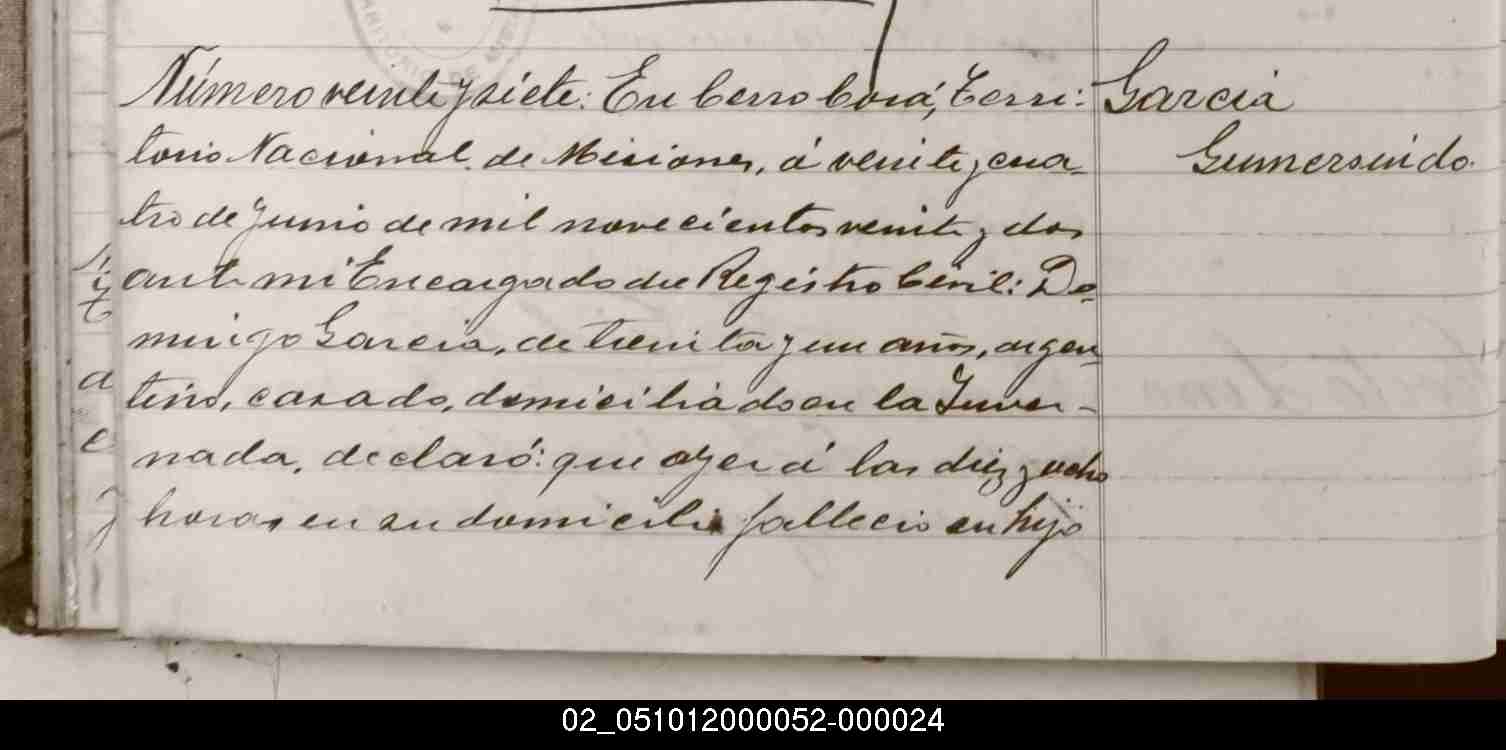 Número veinte y siete: En Cerro Corá, Terri:
torio Nacional de Misiones, á veinte y cua-
tro de Junio de mil novecientos veinte y dos
ante mi Encargado del Registro Civil: Do-
mingo Garcia, de treinta y un años, argen-
tino, casado, domiciliado en la Inver-
nada, declaró: que ayer á las diez y ocho
horas, en su domicilio fallecio su hijo
Garcia
Gumersindo
02_051012000052-000024